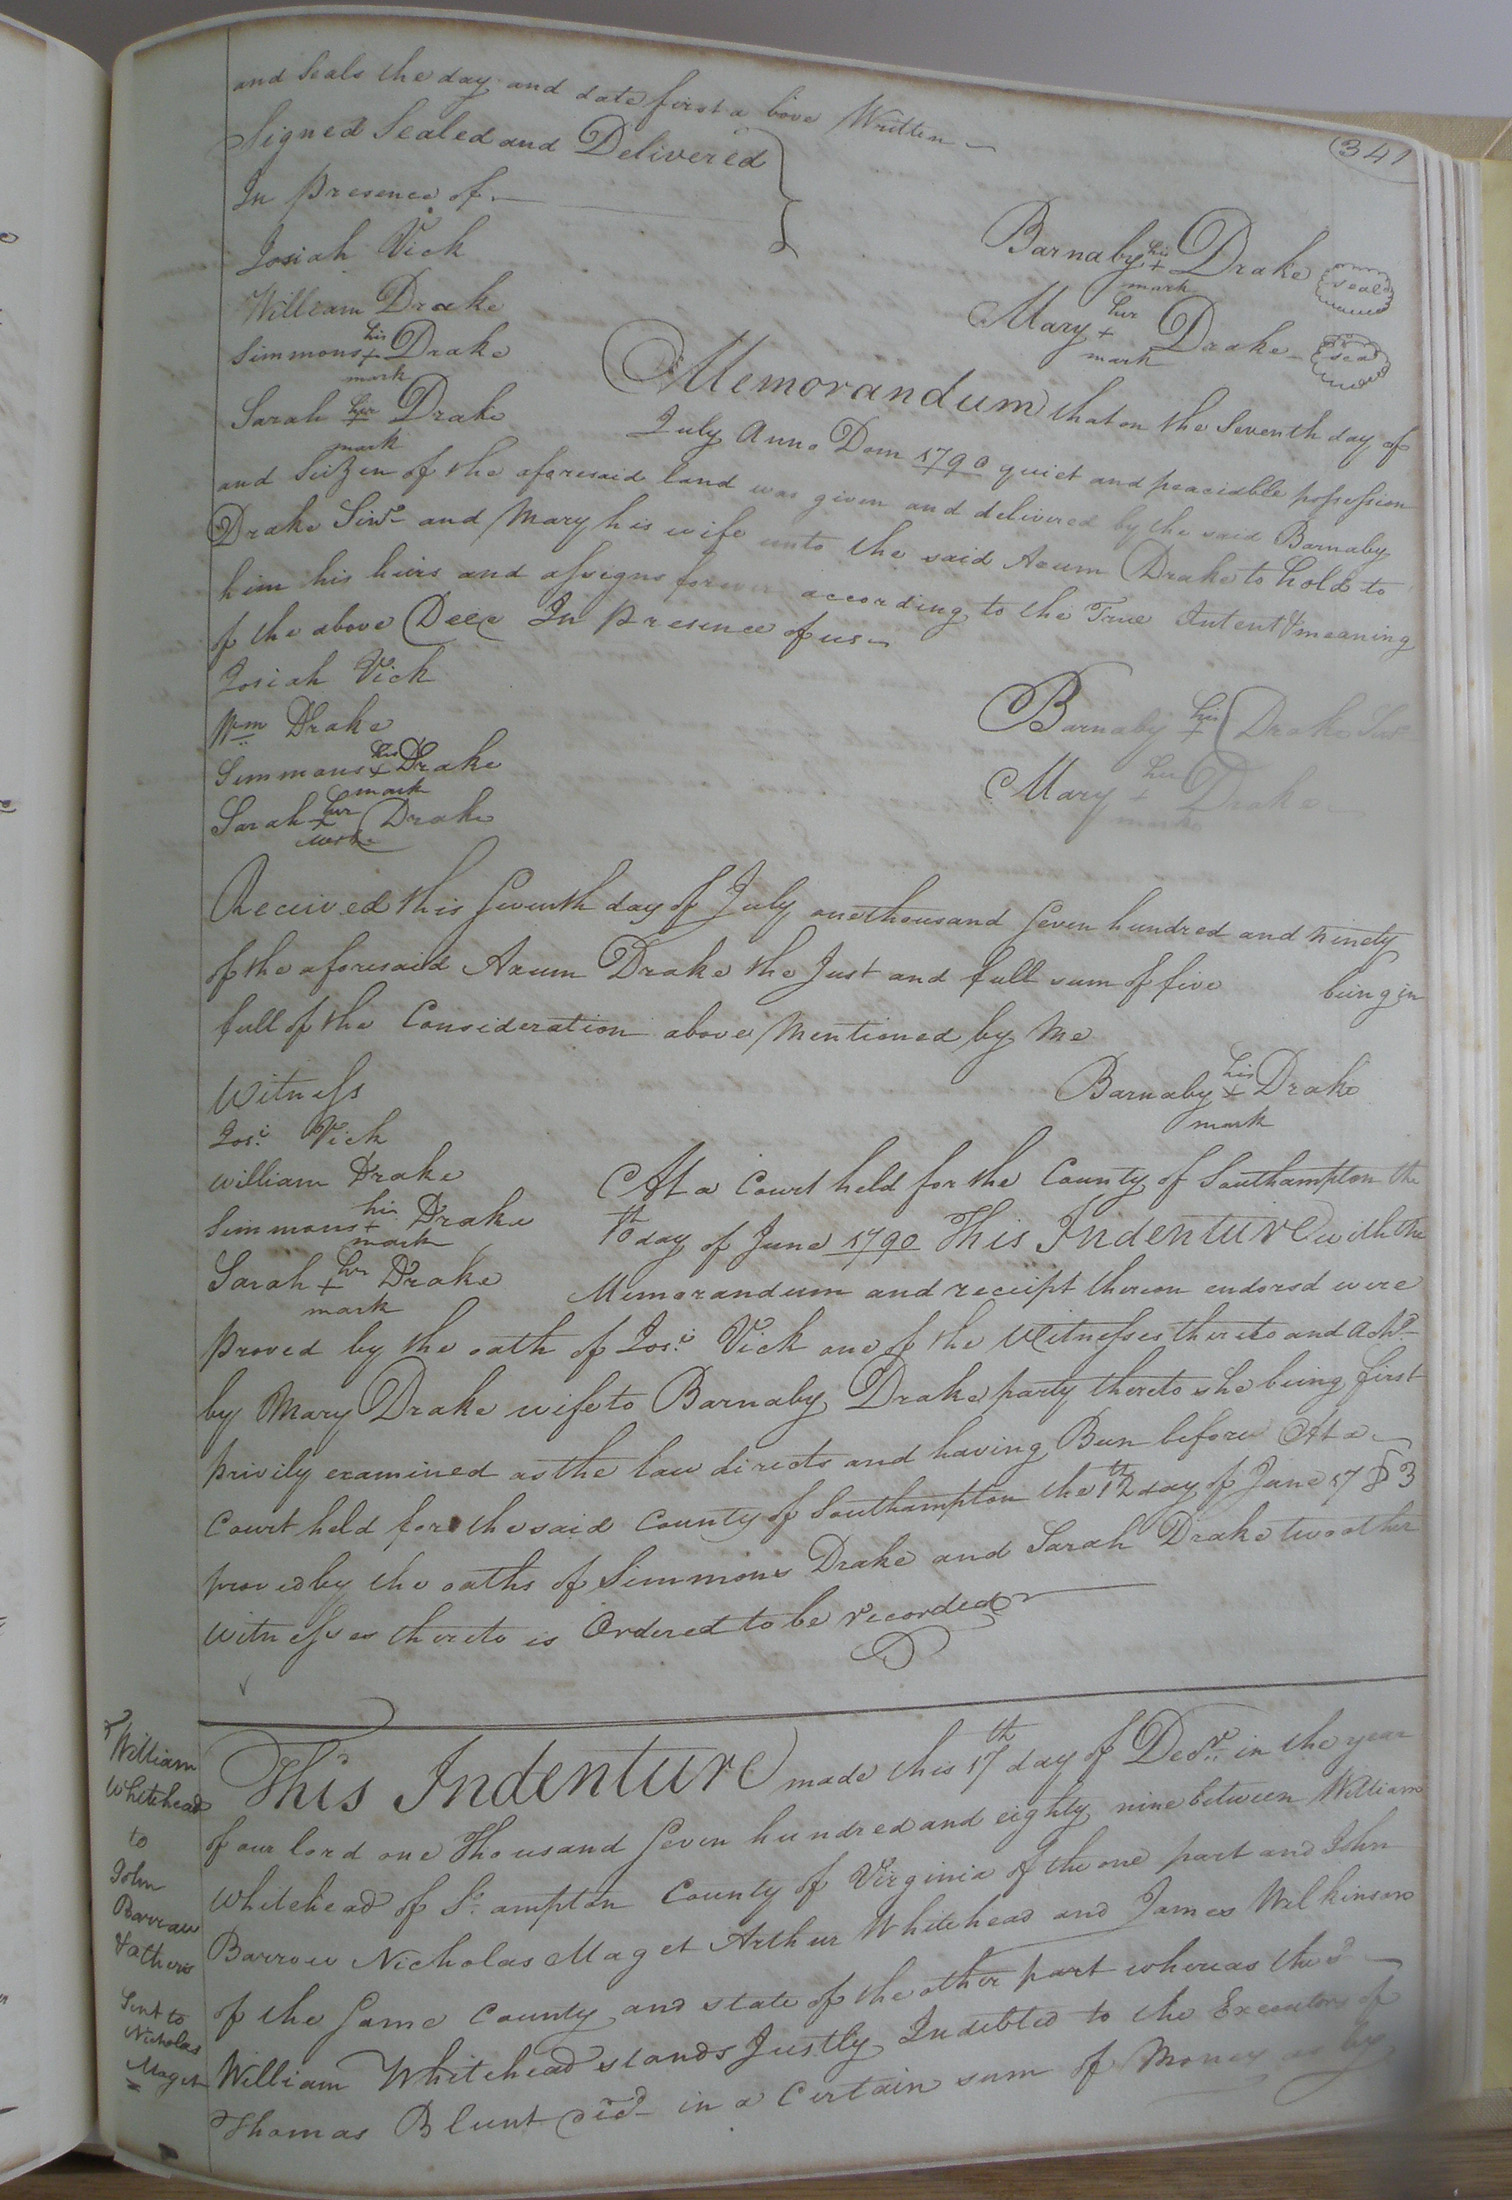 and Seals the day and date first a bove Written
341
Signed Sealed and Delivered
In presence of
Josiah Vick
Barnaby his + mark Drake seal
William Drake
Mary her + mark Drake seal
Simmons his + mark Drake
Sarah her + mark Drake
Memorandum that on the Seventh day of
July Anno Dom 1790 quiet and peaciable possession
and Seizen of the aforesaid land was given and delivered by the said Barnaby
Drake Sinr and Mary his wife unto the said Axum Drake to hold to
him his heirs and assigns forever according to the True Intent & meaning
of the above Deed In presence of us
Josiah Vick
Barnaby his + Drake
Wm Drake
Simmons his + mark Drake
Mary her + mark Drake
Sarah her + mark Drake
Received this Seventh day of July one thousand Seven hundred and ninety
of the aforesaid Axum Drake the Just and full sum of five being in
full of the Consideration above Mentioned by Me
Witness
Barnaby his + mark Drake
Josi Vick
William Drake
At a Court held for the County of Southampton the
Simmons his + mark Drake
day of June 1790 This Indenture with the
Sarah her + mark Drake
Memorandum and receipt thereon endorsd were
proved by the oath of Josi Vick one of the Witnesses thereto and
by Mary Drake wife to Barnaby Drake party thereto she being first
privily examined as the law directs and having Been before At a
Court held for the said County of Southampton the 12th day of June
proved by the oaths of Simmons Drake and Sarah Drake two other
witnesses thereto is Ordered to be recorded
William
Whitehead
to
John
Barrow
& others
Sent to
Nicholas
Maget
This Indenture made this 17th day of Decr. in the year
of our lord one Thousand Seven hundred and eighty nine between William
Whitehead of So. ampton County of Virginia of the one part and John
Barrow Nicholas Maget Arthur Whitehead and James Wilkinson
of the Same County and state of the other part whereas the sd
William Whitehead stands Justly Indebted to the Executors of
Thomas Blunt decd in a Certain sum of Money as by